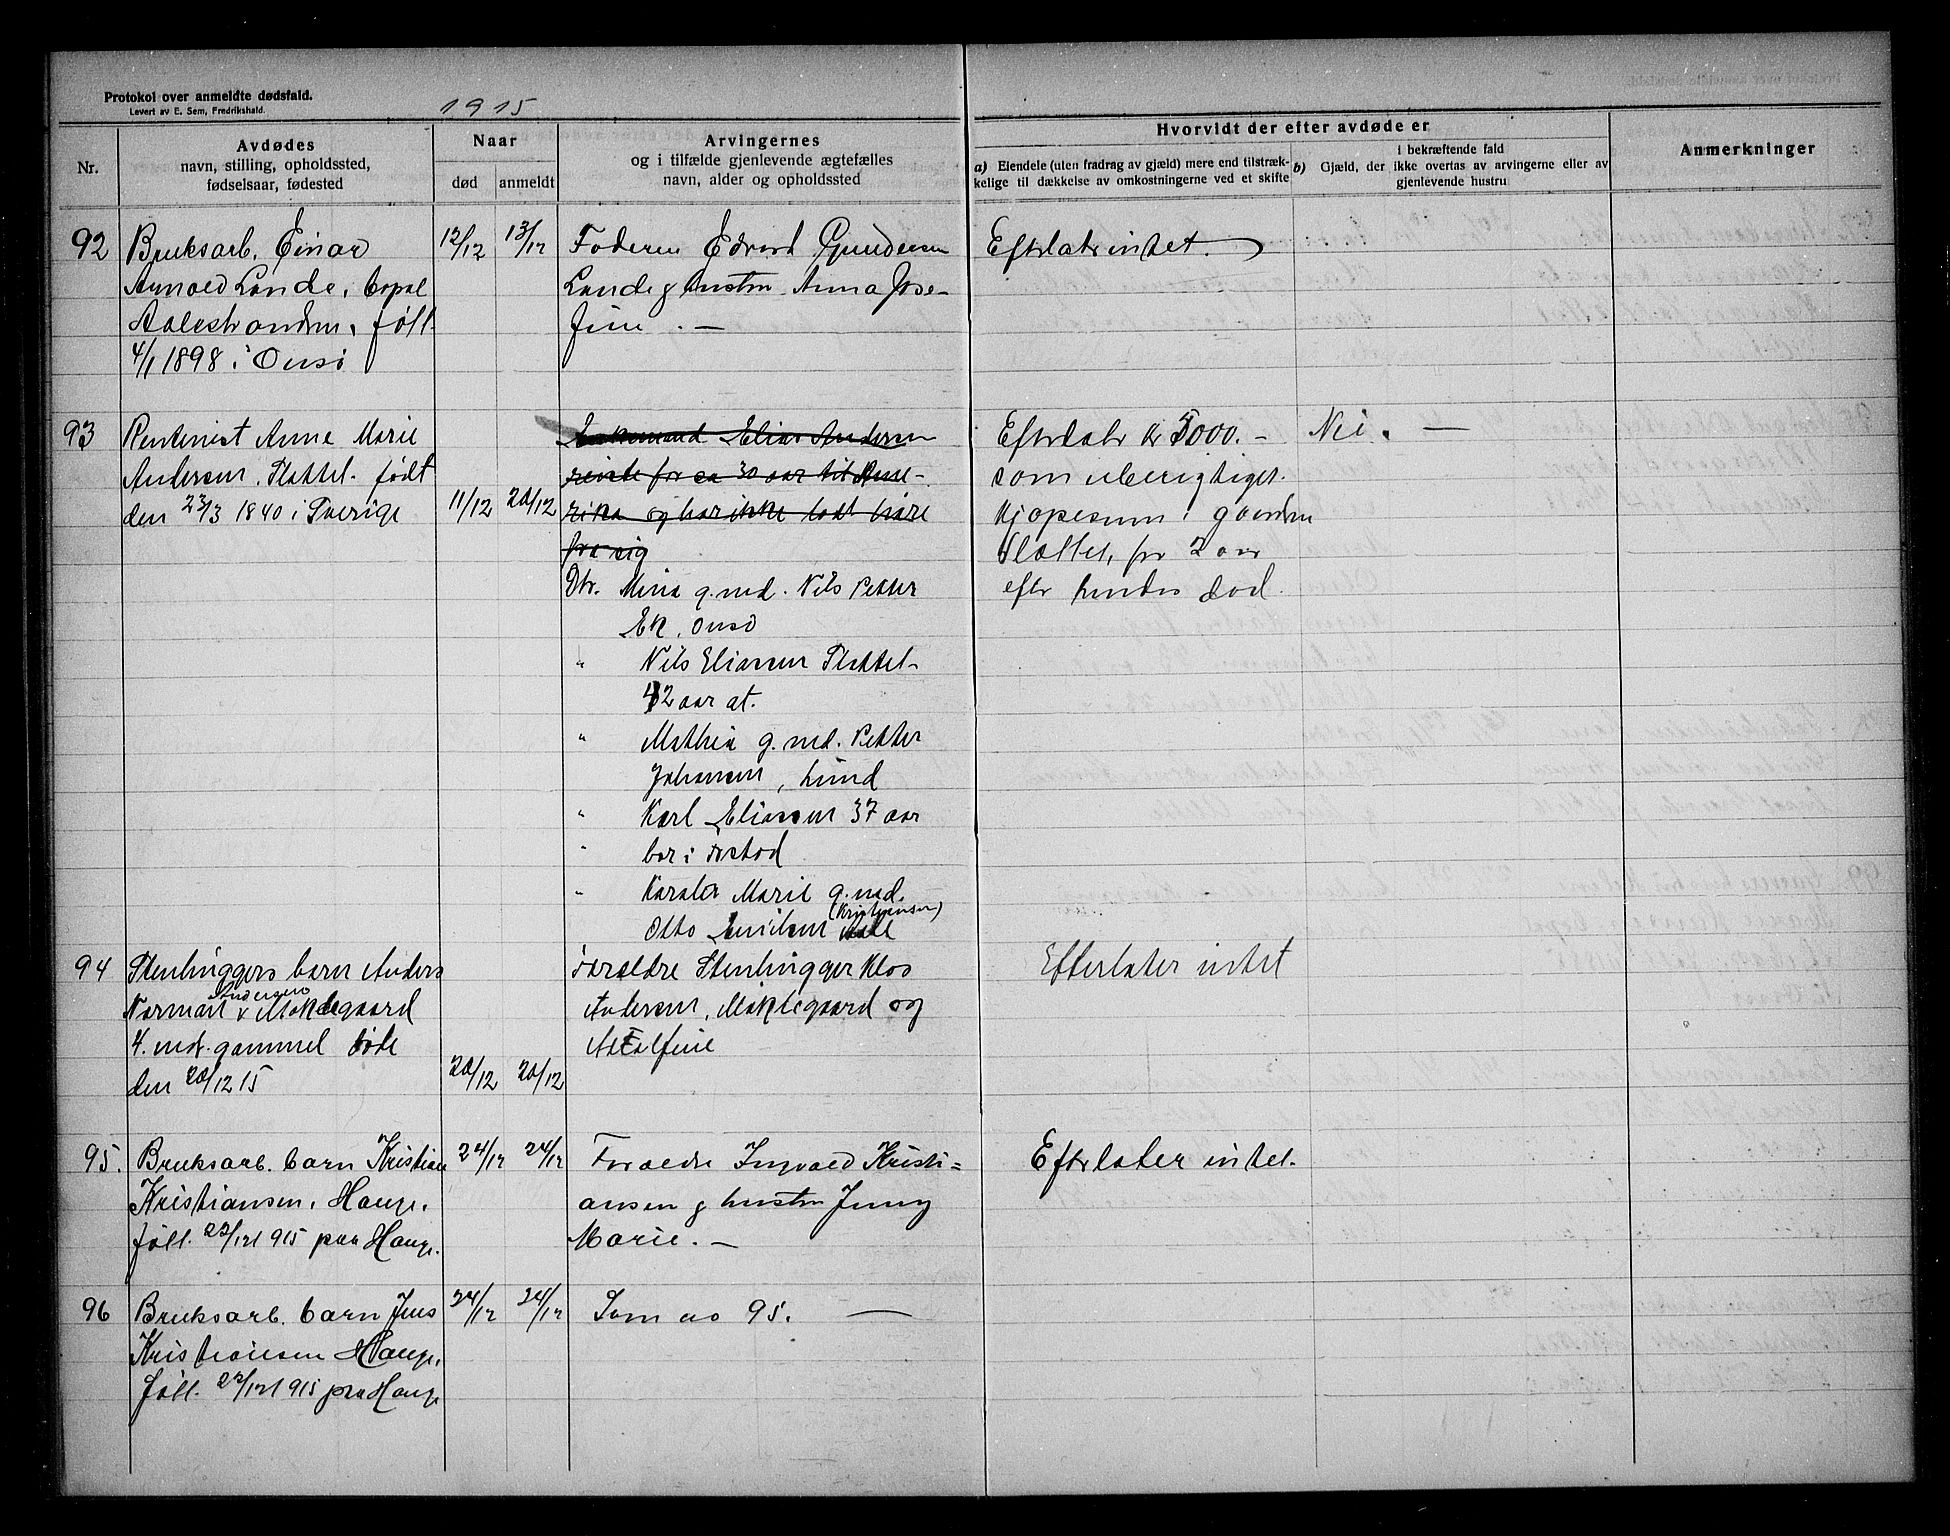 Protokol over anmeldte dødsfald.
Levert av E. Sem, Fredrikshald.
1915.
Nr.
Avdødes
navn, stilling, opholdssted,
fødselsaar, fødested
Naar
død
anmeldt
Arvingernes
og i tilfælde gjenlevende ægtefælles
navn, alder og opholdssted
Hvorvidt der efter avdøde er
a) Eiendele (uten fradrag av gjæld) mere end tilstræk-
kelige til dækkelse av omkostningerne ved et skifte
b) Gjæld, der
i bekræftende fald
ikke overtas av arvingerne eller av
gjenlevende hustru
Anmerkninger
92
Bruksarb. Einar
Arnold Lande,
Aalestranden, født
4/1 1898 i Onsø
12/12
13/12
Faderen Edvard Gundersen
Lande & hustru Anna Jose-
fine. —
Efterlater intet.
93
Rentenist Anne Marie
Andersen, Slættet. født
den 23/3 1840 i Sverige
11/12
20/12
Enkemand Elias Andersen
reiste for ca 30 aar til Ame-
rika og har ikke ladt høre
fra sig
Dtr. Mina g. med. Nils Petter
Ek, Onsø
" Nils Eliassen Slættet
42 aar at.
" Mathia g. med. Petter
Johansen, Lund
" Karl Eliassen 37 aar
" bor i
" Marie g. med.
(Kristiansen)
Otto
Efterlater Kr 5000.-
som uberigtiget
Kjøpesum i gaarden
Slættet, for 2 aar
efter hendes død.
Nei. —
94
Stenhuggers barn Anders
Andersen
Norman v Moklegaard
4. mdr. gammel døde
den 20/12 15
20/12
20/12
Forældre Stenhugger Klos
Andersen, Moklegaard og
Adolfine
Efterlater intet
95.
Bruksarb. barn Kristian
Kristiansen, Hauge,
født. 22/12 1915 paa Hauge.
24/12
24/12
Foraldre Ingvald Kristi=
ansen & hustru Jenny
Marie. —
Efterlater intet.
96
Bruksarb. barn Jens
Kristiansen Hauge,
født. 22/12 1915 paa Hauge
24/12
24/12
Som no 95. —